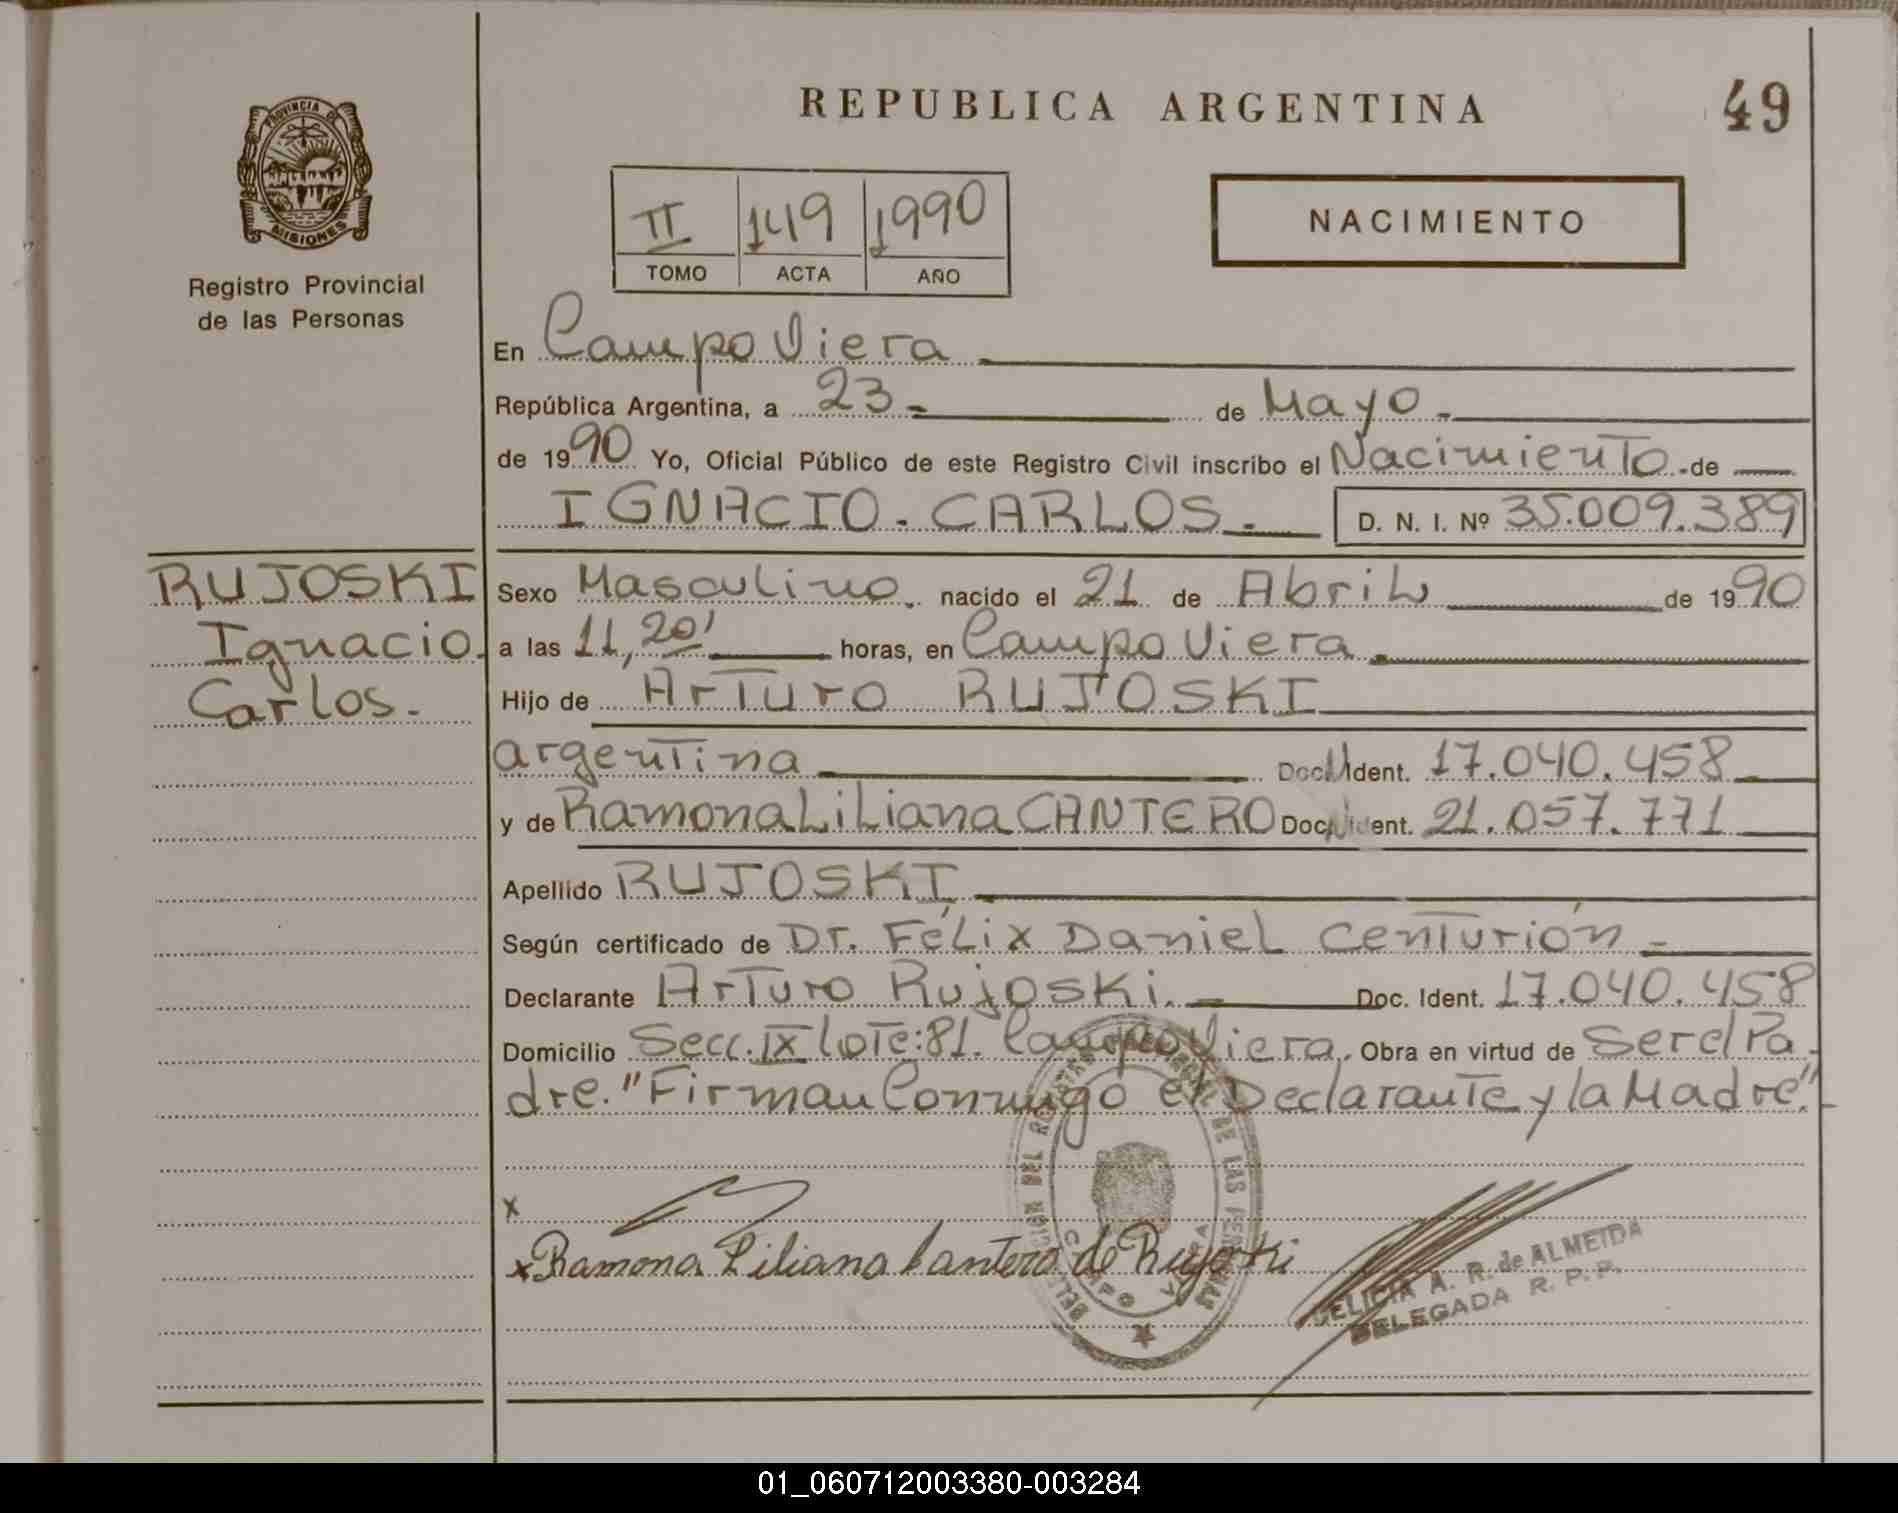 REPUBLICA ARGENTINA
49
PROVINCIA DE
MISIONES
Registro Provincial
de las Personas
II 149 1990
TOMO ACTA AÑO
NACIMIENTO
En Campo Viera
República Argentina, a 23 de Mayo.
de 1990 Yo, Oficial Público de este Registro Civil inscribo el Nacimiento de
IGNACIO. CARLOS. D. N. I. Nº 35.009.389
RUJOSKI
Ignacio.
Carlos.
Sexo Masculino, nacido el 21 de Abril de 1990
a las 11,20' horas, en Campo Viera.
Hijo de Arturo RUJOSKI
argentina Doc. Ident. 17.040.458
y de Ramona Liliana CANTERO Doc. Ident. 21.057.771
Apellido RUJOSKI
Según certificado de Dr. Félix Daniel Centurión
Declarante Arturo Rujoski. Doc. Ident. 17.040.458
Domicilio Secc. IX lote: 81. Campo Viera. Obra en virtud de Ser el Pa-
dre. "Firman Conmigo el Declarante y la Madre".-
x
x Ramona Liliana Cantero de Rujoski
DELICIA A. R. de ALMEIDA
DELEGADA R. P. P.
01_060712003380-003284